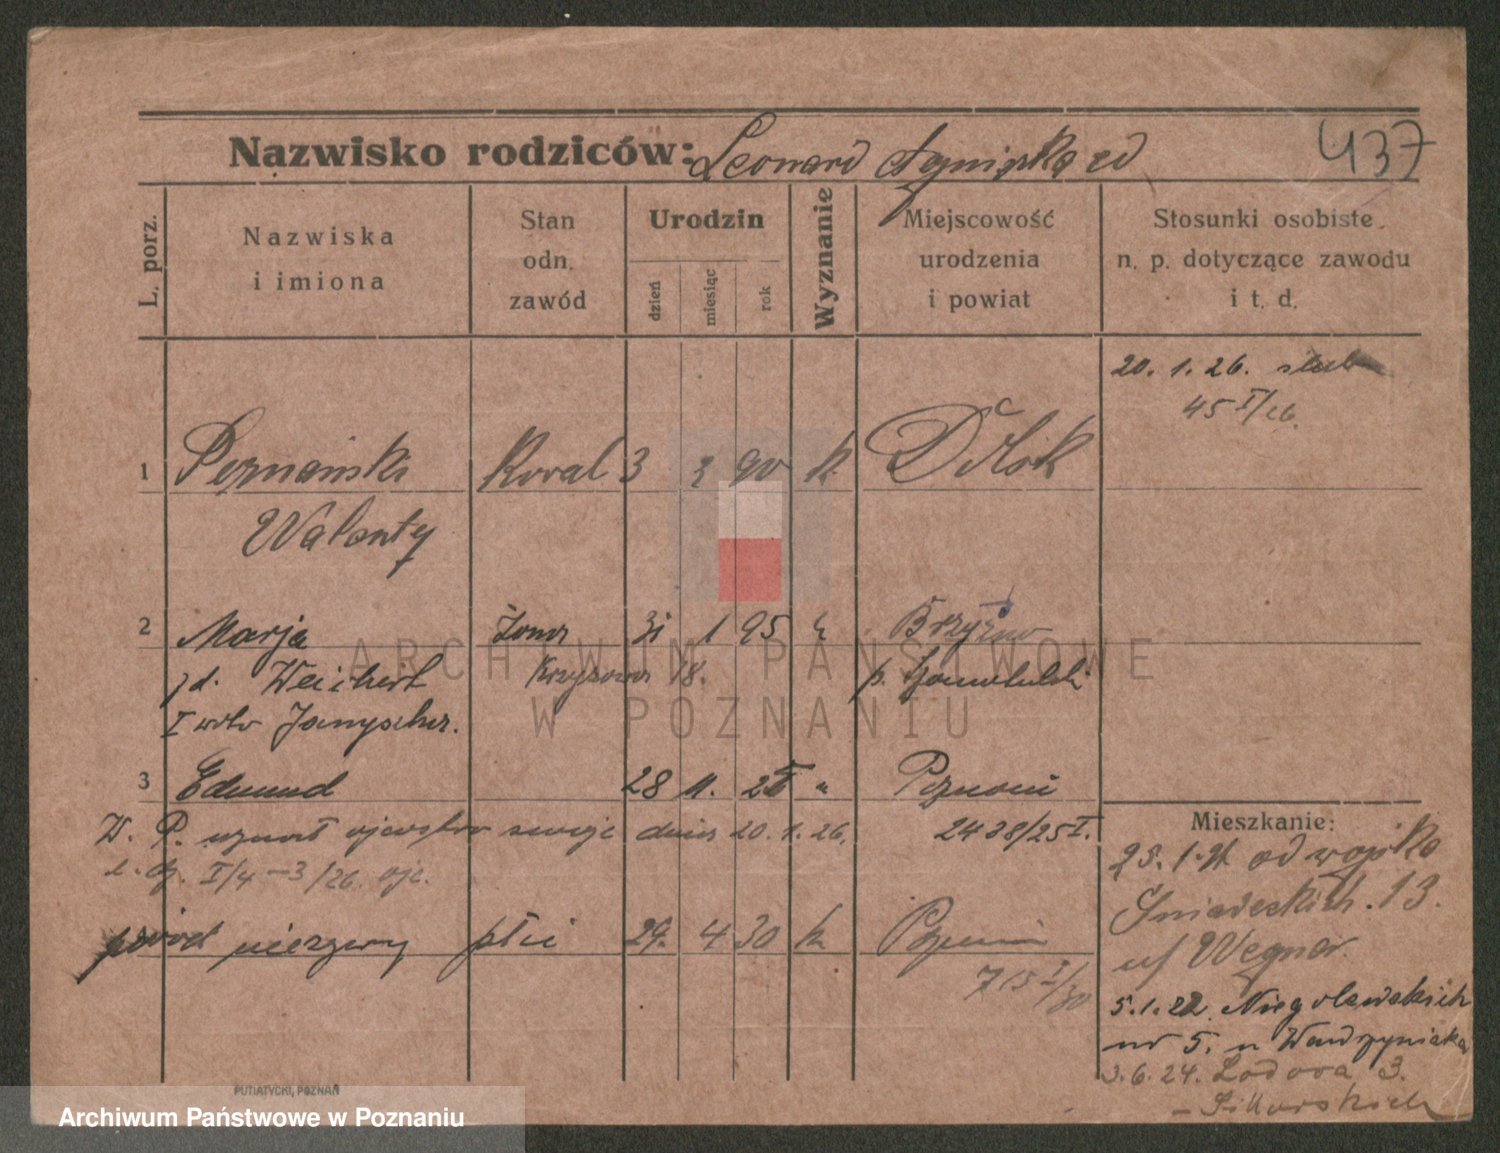 Nazwisko rodziców: Leonard Agnieszka
437
L. porz.
Nazwiska
i imiona
Stan
odn.
zawód
Urodzin
dzień
miesiąc
rok
Wyznanie
Miejscowość
urodzenia
i powiat
Stosunki osobiste
n. p. dotyczące zawodu
i t. d.
20. 1. 26. ślub
45 I/26.
1 Poznański Koval 3 90 k
Walenty
2 Marja żona 31 1 95 Brzyzno
Weichert 18.
I voto
3 Edmund 28 11. 25 " Poznań
W. P. uznał ojcostwo swoje dnia 20. 1. 26. 2438/25 I.
I/4-3/26.
poród nieżywy płci 29. 4 30 k Poznań
715 I/30
Mieszkanie:
25. 1. 21 od wojska
Śniadeckich. 13.
u/ Wegner.
5. 1. 22 Niegolewskich
nr 5. u Wawrzyniaka
3. 6. 24. 3.
- Sikorskich
PUTIATYCKI, POZNAŃ
ARCHIWUM PAŃSTWOWE
W POZNANIU
Archiwum Państwowe w Poznaniu